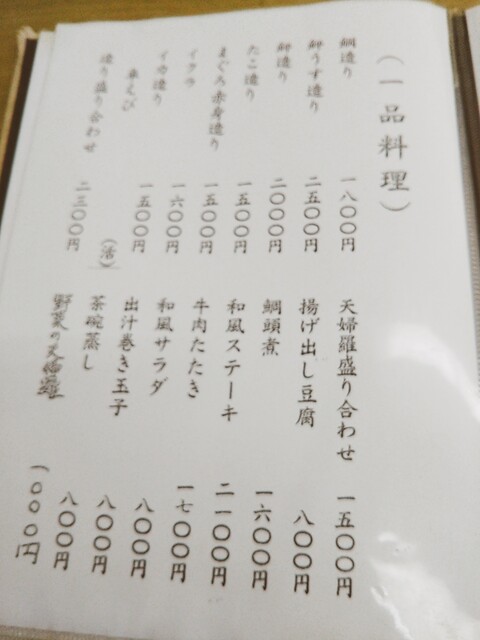 （一品料理）
鯛造り 一八〇〇円
うす造り 二五〇〇円
造り 二〇〇〇円
たこ造り 一五〇〇円
まぐろ赤身造り 一五〇〇円
イクラ 一六〇〇円
イカ造り 一五〇〇円
車えび （活）
造り盛り合わせ 二三〇〇円
天婦羅盛り合わせ 一五〇〇円
揚げ出し豆腐 八〇〇円
鯛頭煮 一六〇〇円
和風ステーキ 二一〇〇円
牛肉たたき 一七〇〇円
和風サラダ 八〇〇円
出汁巻き玉子 八〇〇円
茶碗蒸し 八〇〇円
野菜の天婦羅 一〇〇〇円